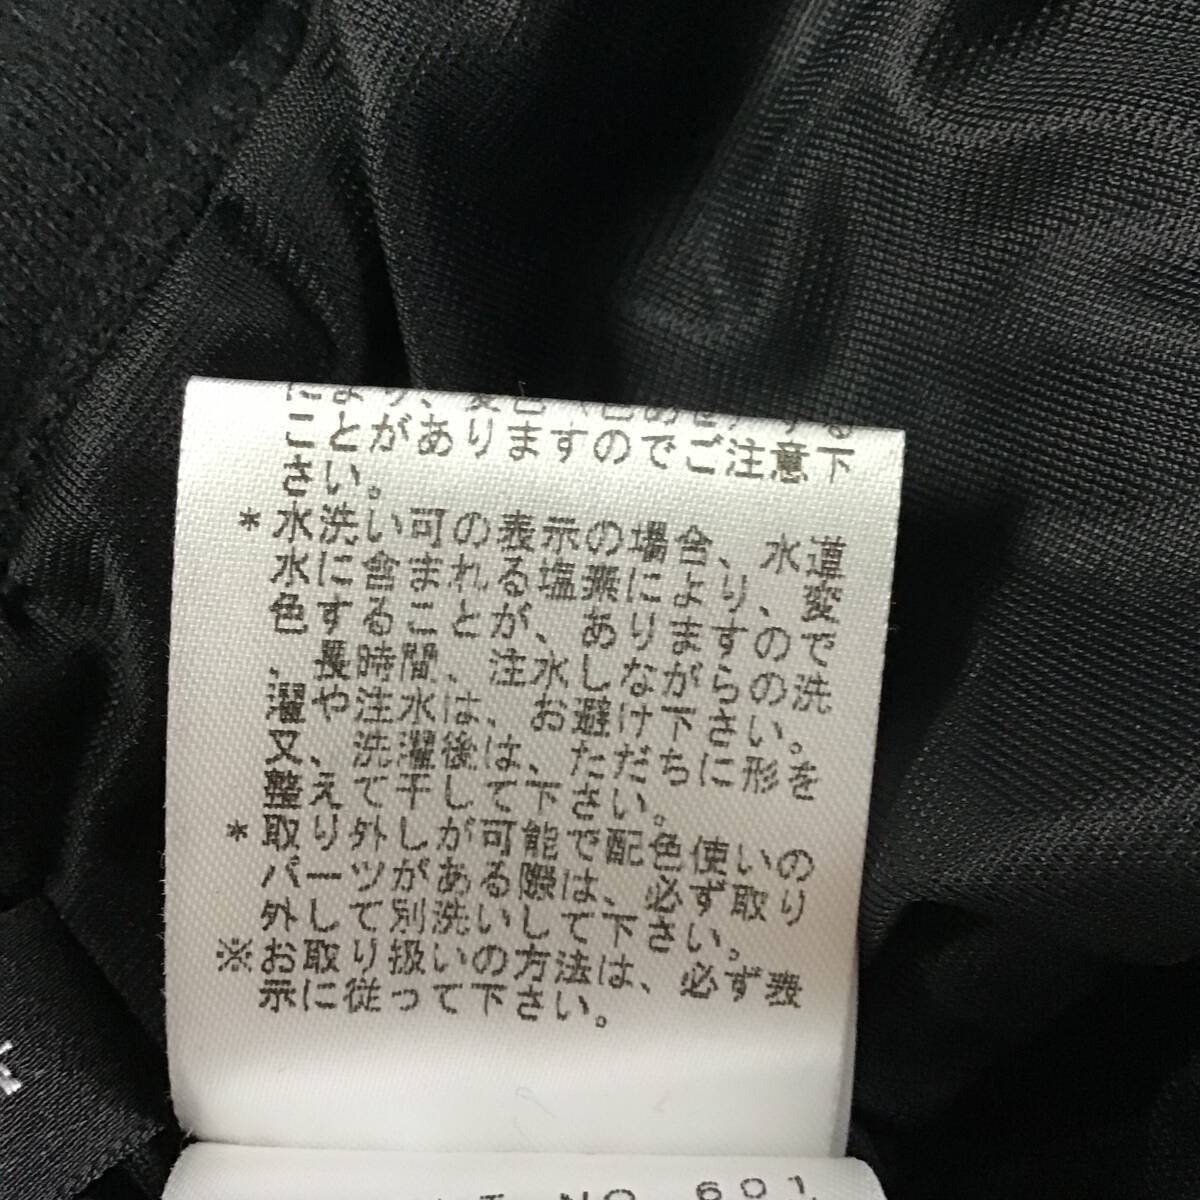 により、変色（色あせ）する
ことがありますのでご注意下
さい。
＊水洗い可の表示の場合、水道
水に含まれる塩素により、変
色することが、ありますので
、長時間、注水しながらの洗
濯や注水は、お避け下さい。
又、洗濯後は、ただちに形を
整えて干して下さい。
＊取り外しが可能で配色使いの
パーツがある際は、必ず取り
外して別洗いして下さい。
※お取り扱いの方法は、必ず表
示に従って下さい。
NO 601